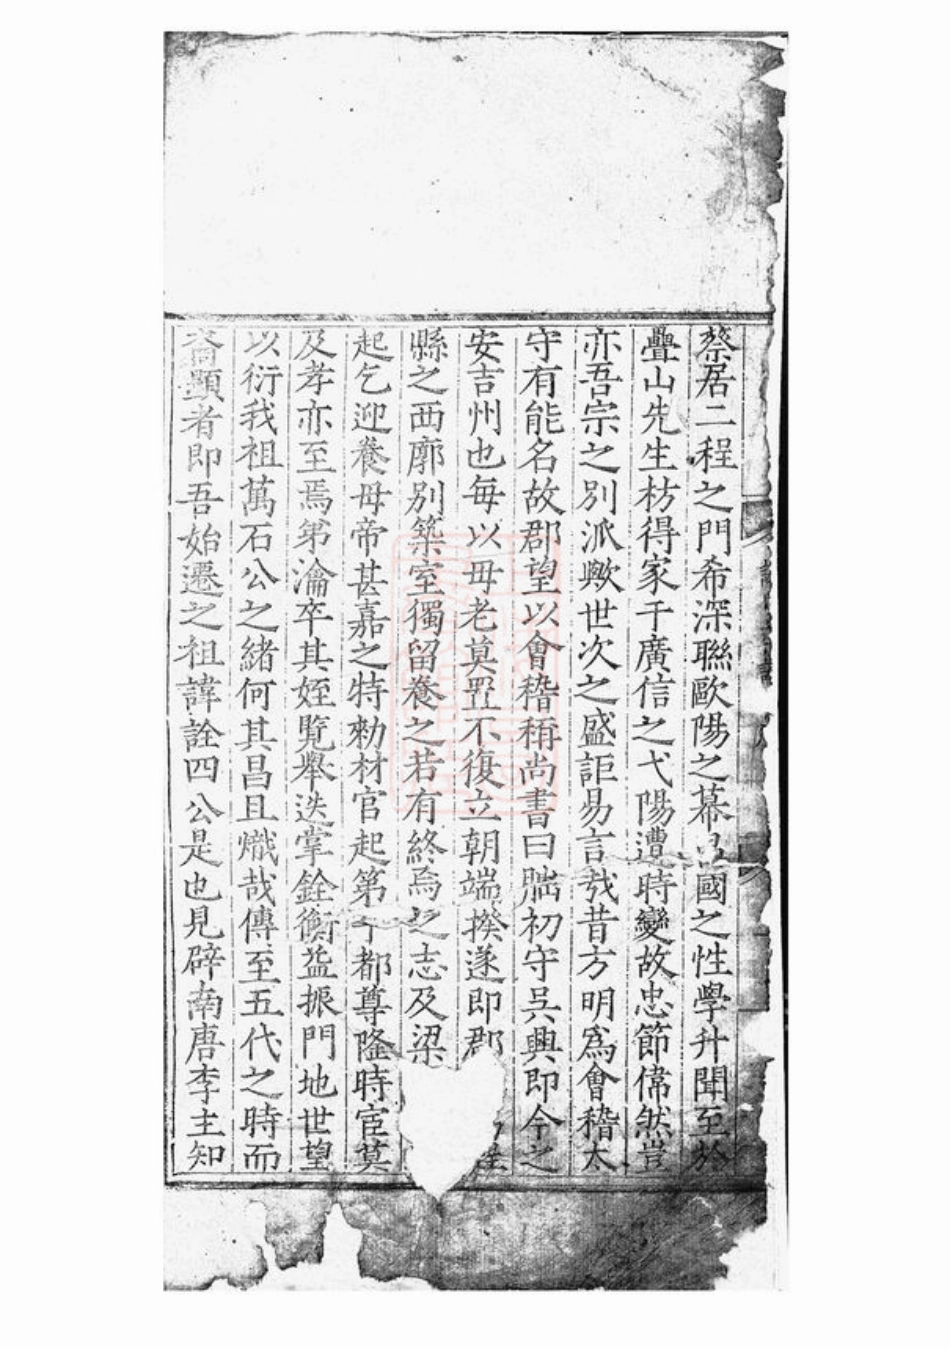 蔡居二程之門希深聯歐陽之幕呂國之性學升聞至於
疊山先生枋得家于廣信之弋陽遭時變故忠節偉然豈
亦吾宗之別派歟世次之盛詎易言哉昔方明為會稽太
守有能名故郡望以會稽稱尚書曰朏初守吳興即今之
安吉州也每以母老莫置不復立朝端揆遂即郡
縣之西廓別築室獨留養之若有終焉之志及梁
起乞迎養母帝甚嘉之特勑材官起第于都尊隆時宦莫
及孝亦至焉第瀹卒其姪覽舉迭掌銓衡益振門地世望
以衍我祖萬石公之緒何其昌且熾哉傳至五代之時而
裔顯者即吾始遷之祖諱詮四公是也見辟南唐李主知